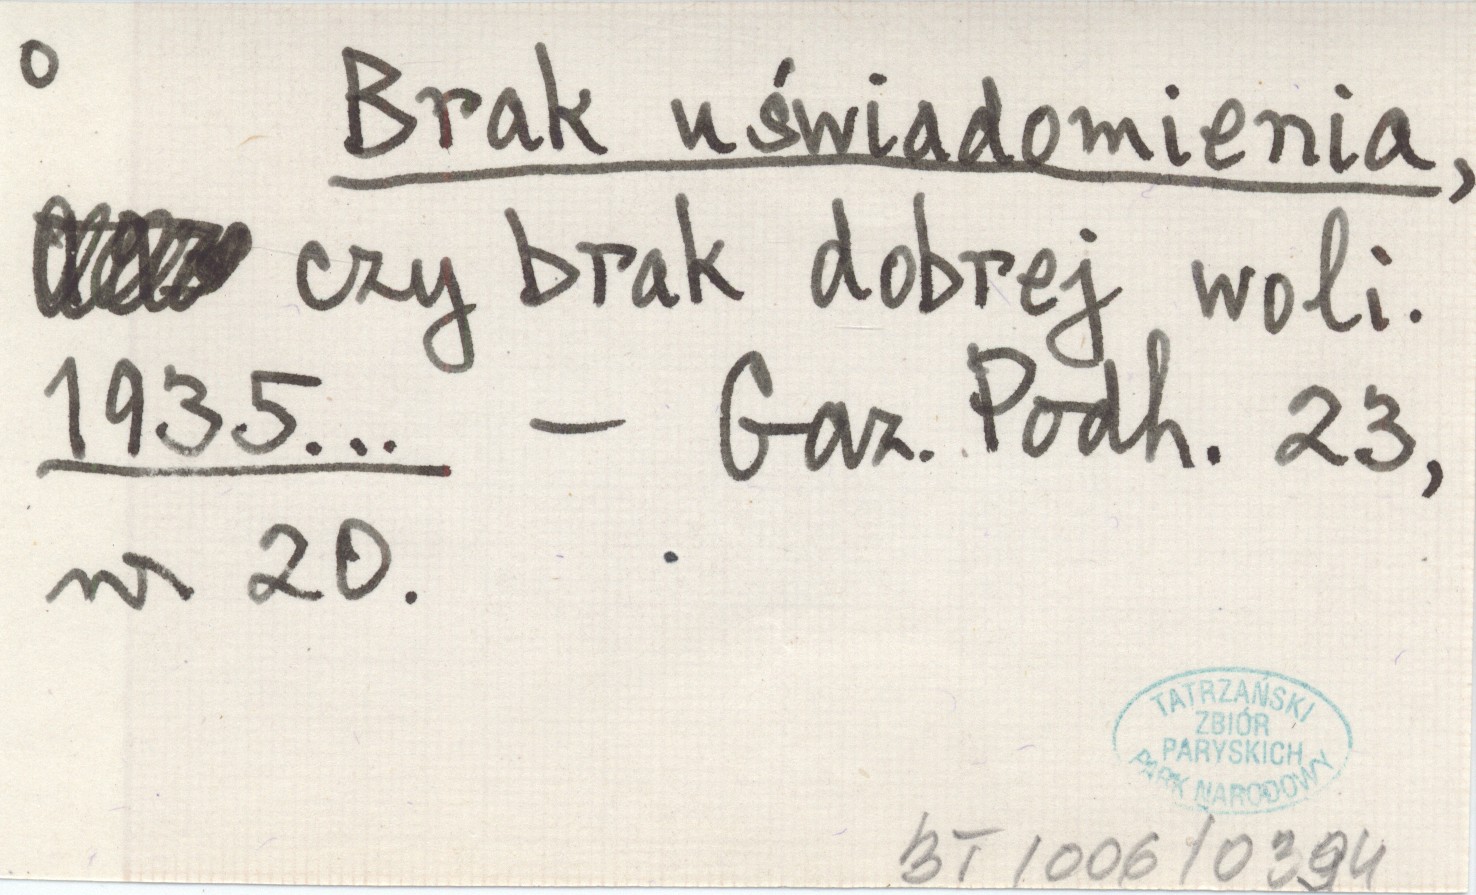 o Brak uświadomienia,
czy brak dobrej woli.
1935... – Gaz. Podh. 23,
nr 20.
TATRZAŃSKI
ZBIÓR
PARYSKICH
PARK NARODOWY
BT 1006/0394